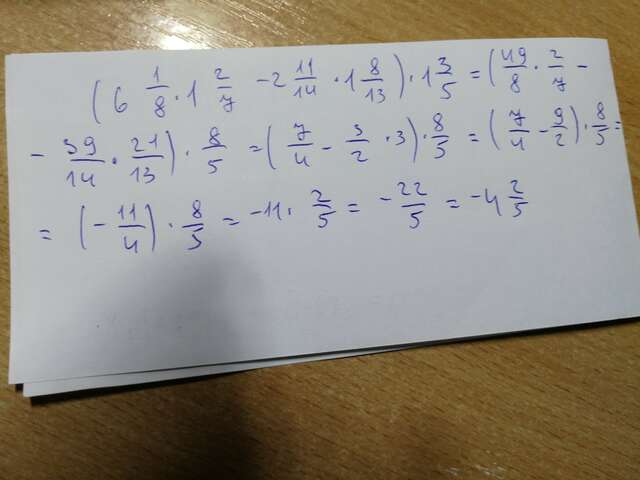 (6 1/8 · 1 2/7 - 2 11/14 · 1 8/13) · 1 3/5 = (49/8 · 2/7 -
- 39/14 · 21/13) · 8/5 = (7/4 - 3/2 · 3) · 8/5 = (7/4 - 9/2) · 8/5 =
= (- 11/4) · 8/5 = -11 · 2/5 = - 22/5 = -4 2/5